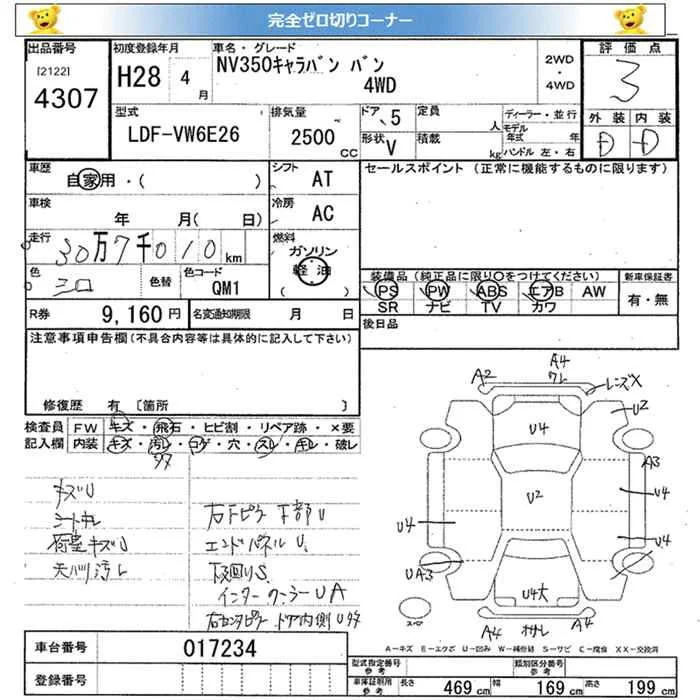 完全ゼロ切りコーナー
出品番号
[2122]
4307
初度登録年月
H28 4月
車名・グレード
NV350キャラバン バン
4WD
2WD
・
4WD
評価点
3
型式
LDF-VW6E26
排気量
2500
CC
ドア 5
形状 V
定員
人
積載
kg
ディーラー・並行
モデル
年式 年
ハンドル 左・右
外装
内装
D
D
車歴
自家用・( )
シフト
AT
車検
年 月( 日)
冷房
AC
走行
30万7千010km
燃料
ガソリン
軽油
( )
色
シロ
色替
色コード
QM1
R券
9,160円
名変通知期限 月 日
セールスポイント(正常に機能するものに限ります)
装備品(純正品に限り○をつけてください)
新車保証書
有・無
PS PW ABS エアB AW
SR ナビ TV カワ
後日品
注意事項申告欄(不具合内容等は具体的に記入して下さい)
修復歴 有 〔箇所 〕
検査員
記入欄
FW キズ・飛石・ヒビ割・リペア跡・×要
内装 キズ・汚レ・コゲ・穴・スレ・キレ・破レ
キズU
シートキレ
荷室キズU
天バリ汚レ
下部U
エンドパネルU
下廻りS
インタークーラーUA
ドア内側
A2
A4
ワレ
レンズX
U2
U4
A3
U4
U2
U4
U4
UA3
U4大
A4
A4
スペ
A-キズ E-エクボ U-凹み W-補修跡 S-サビ C-腐食 XX-交換済
車台番号
017234
登録番号
型式指定番号
参考
類別区分番号
参考
車庫証明用
参考
長さ 469cm
幅 169cm
高さ 199cm